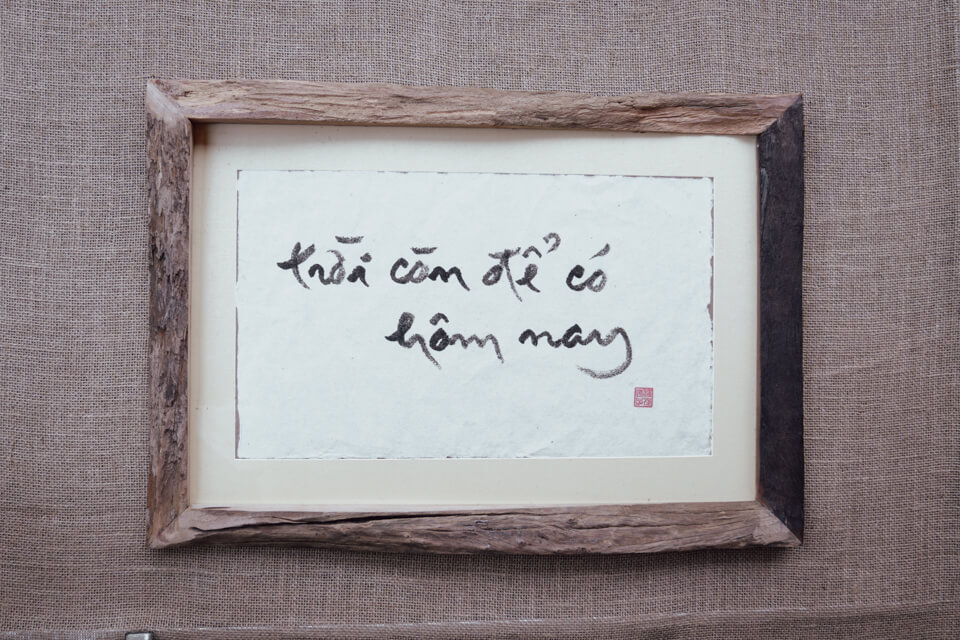 trời còn để có
hôm nay